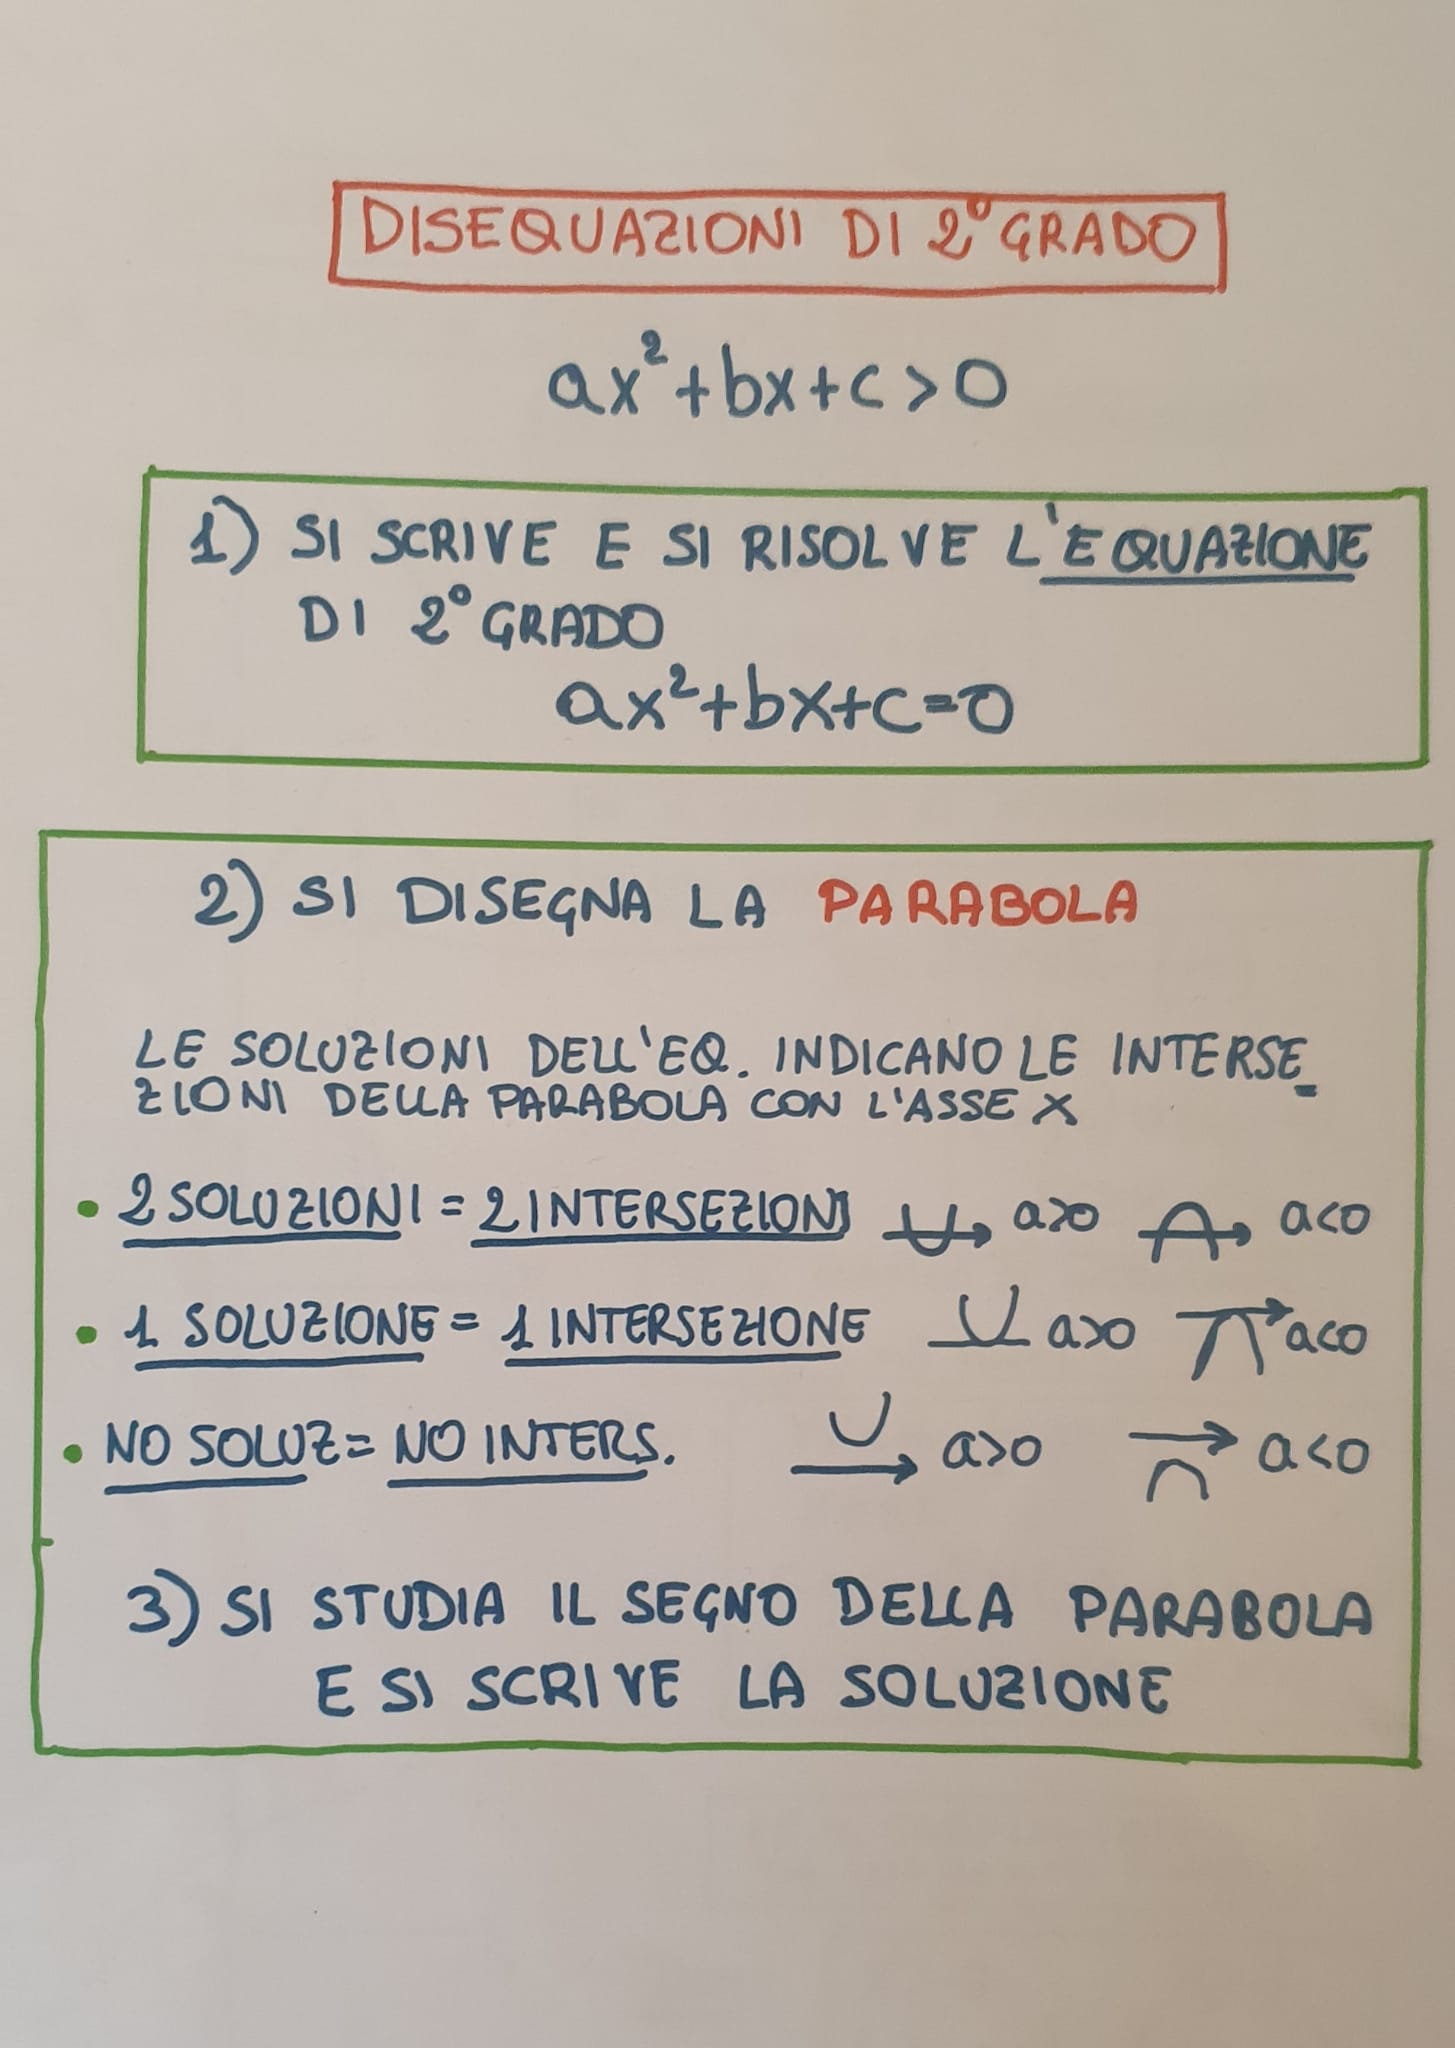 DISEQUAZIONI DI 2° GRADO
ax²+bx+c>0
1) SI SCRIVE E SI RISOLVE L'EQUAZIONE
DI 2° GRADO
ax²+bx+c=0
2) SI DISEGNA LA PARABOLA
LE SOLUZIONI DELL'EQ. INDICANO LE INTERSE_
ZIONI DELLA PARABOLA CON L'ASSE X
• 2 SOLUZIONI = 2 INTERSEZIONI a>0 a<0
• 1 SOLUZIONE = 1 INTERSEZIONE a>0 a<0
• NO SOLUZ = NO INTERS. a>0 a<0
3) SI STUDIA IL SEGNO DELLA PARABOLA
E SI SCRIVE LA SOLUZIONE